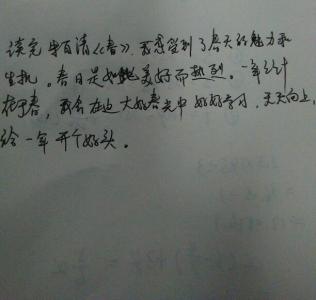 读完朱自清《春》，我感受到了春天的魅力和
生机。春日是如此美好而热烈。一年之计
在于春，我会在这大好春光中好好学习，天天向上，
给一年开个好头。